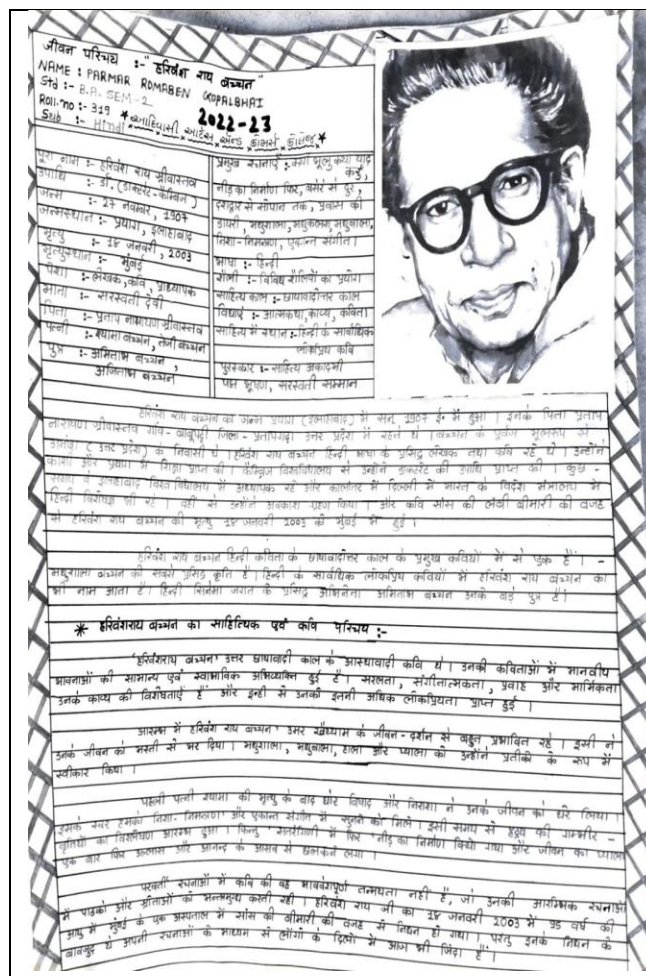 जीवन परिचय :- "हरिवंश राय बच्चन"
NAME : PARMAR ROMABEN GOPALBHAI
Std :- B.A. SEM-2
Roll.no :- 319
2022-23
Sub :- Hindi
* આદિવાસી આર્ટસ એન્ડ કોમર્સ કોલેજ *
पूरा नाम :- हरिवंश राय श्रीवास्तव
उपाधि :- डॉ. (डाक्टरेट-कैम्ब्रिज)
जन्म :- 27 नवम्बर, 1907
जन्मस्थान :- प्रयाग, इलाहाबाद
मृत्यु :- 18 जनवरी, 2003
मृत्युस्थान :- मुंबई
पेशा :- लेखक, कवि, प्राध्यापक
माता :- सरस्वती देवी
पिता :- प्रताप नारायण श्रीवास्तव
पत्नी :- श्यामा बच्चन, तेजी बच्चन
पुत्र :- अमिताभ बच्चन,
अजिताभ बच्चन
प्रमुख रचनाएँ :- क्या भूलूं क्या याद
करूं,
नीड़ का निर्माण फिर, बसेरे से दूर,
दशद्वार से सोपान तक, प्रवास की
डायरी, मधुशाला, मधुकलश, मधुबाला,
निशा-निमन्त्रण, एकान्त संगीत।
भाषा :- हिन्दी
शैली :- विविध शैलियों का प्रयोग
साहित्य काल :- छायावादोत्तर काल
विधाएँ :- आत्मकथा, काव्य, कविता
साहित्य में स्थान :- हिन्दी के सर्वाधिक
लोकप्रिय कवि
पुरस्कार :- साहित्य अकादमी
पद्म भूषण, सरस्वती सम्मान
हरिवंश राय बच्चन का जन्म प्रयाग (इलाहाबाद) में सन् 1907 ई॰ में हुआ। इनके पिता प्रताप
नारायण श्रीवास्तव गाँव - बाबूपट्टी जिला - प्रतापगढ़ी उत्तर प्रदेश में रहते थे। बच्चन के पूर्वज मूलरूप से
अमोढ़ा (उत्तर प्रदेश) के निवासी थे। हरिवंश राय बच्चन हिन्दी भाषा के प्रसिद्ध लेखक तथा कवि रहे थे। उन्होंने
काशी और प्रयाग में शिक्षा प्राप्त की। कैम्ब्रिज विश्वविद्यालय से उन्होंने डॉक्टरेट की उपाधि प्राप्त की। कुछ -
समय वे इलाहाबाद विश्वविद्यालय में अध्यापक रहे और कालांतर में दिल्ली में भारत के विदेश मंत्रालय में
हिन्दी विशेषज्ञ भी रहे। वहीं से उन्होंने अवकाश ग्रहण किया। और कवि साँस की लंबी बीमारी की वजह
से हरिवंश राय बच्चन की मृत्यु 18 जनवरी 2003 को मुंबई में हुई।
हरिवंश राय बच्चन हिन्दी कविता के छायावादोत्तर काल के प्रमुख कवियों में से एक हैं। -
मधुशाला बच्चन की सबसे प्रसिद्ध कृति है। हिन्दी के सर्वाधिक लोकप्रिय कवियों में हरिवंश राय बच्चन का
भी नाम आता है। हिन्दी सिनेमा जगत के प्रसिद्ध अभिनेता अमिताभ बच्चन उनके बड़े पुत्र हैं।
* हरिवंशराय बच्चन का साहित्यिक एवं कवि परिचय :-
'हरिवंशराय बच्चन' उत्तर छायावादी काल के आस्थावादी कवि थे। उनकी कविताओं में मानवीय
भावनाओं की सामान्य एवं स्वाभाविक अभिव्यक्ति हुई है। सरलता, संगीतात्मकता, प्रवाह और मार्मिकता
उनके काव्य की विशेषताएँ हैं और इन्ही से उनको इतनी अधिक लोकप्रियता प्राप्त हुई।
आरम्भ में हरिवंश राय बच्चन' उमर खैय्याम के जीवन-दर्शन से बहुत प्रभावित रहे। इसी ने
उनके जीवन को मस्ती से भर दिया। मधुशाला, मधुबाला, हाला और प्याला को उन्होंने प्रतीकों के रूप में
स्वीकार किया।
पहली पत्नी श्यामा की मृत्यु के बाद घोर विषाद और निराशा ने उनके जीवन को घेर लिया।
इसके स्वर हमको 'निशा-निमन्त्रण' और एकान्त संगीत में सुनने को मिले। इसी समय से हृदय की गम्भीर -
वृत्तियों का विश्लेषण आरम्भ हुआ। किन्तु 'सतरंगिणी में फिर 'नीड़ का निर्माण किया गया और जीवन का प्याला
एक बार फिर उल्लास और आनन्द के आसव से छलकने लगा।
परवर्ती रचनाओं में कवि की वह भावावेगपूर्ण तन्मयता नहीं है, जो उनकी आरम्भिक रचनाओं
में पाठकों और श्रोताओं को मन्त्रमुग्ध करती रही। हरिवंश राय जी का 18 जनवरी 2003 में 95 वर्ष की
आयु में मुंबई के एक अस्पताल में साँस की बीमारी की वजह से निधन हो गया। परंतु इनके निधन के
बावजूद ये अपनी रचनाओं के माध्यम से लोंगो के दिलो में आज भी जिंदा हैं।